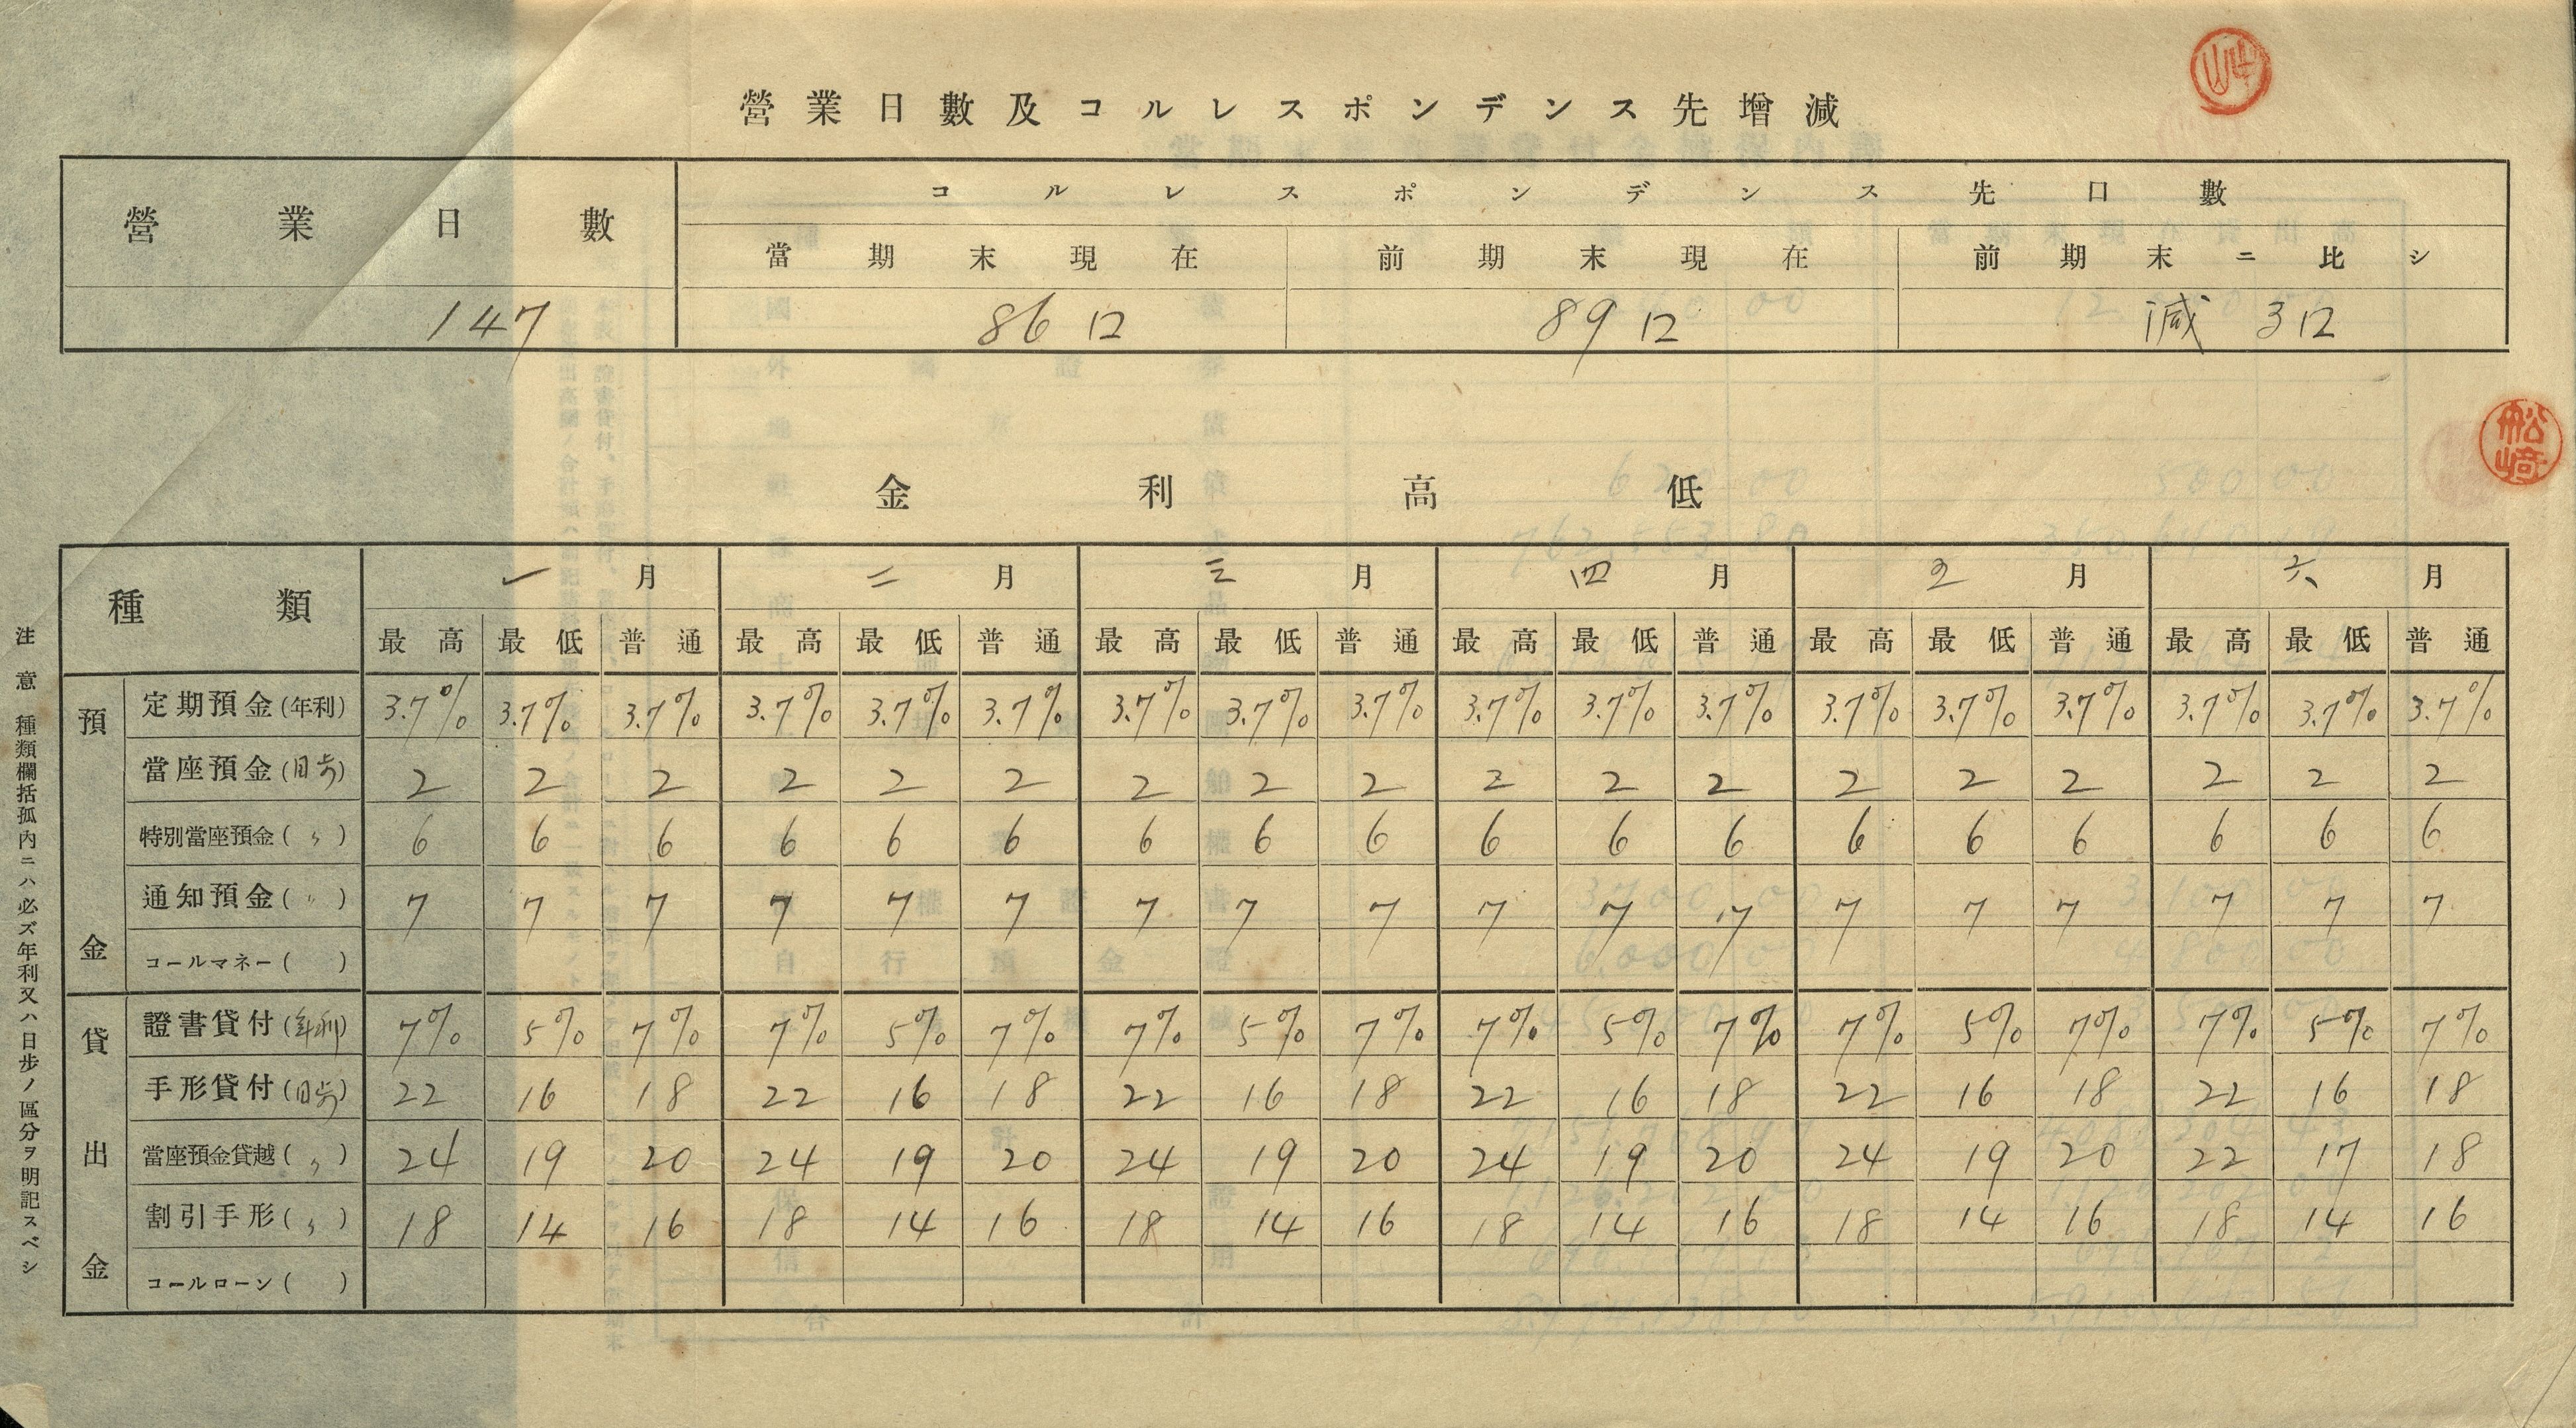 營業日數及コルレスポンデンス先增減
營業日數 コルレスポンデンス先口數
當期末現在 前期末現在 前期末ニ比シ
147 86口 89口 減 3口
松崎
金利高低
種類 一月 二月 三月 四月 五月 六月
最高 最低 普通 最高 最低 普通 最高 最低 普通 最高 最低 普通 最高 最低 普通 最高 最低 普通
預金
定期預金(年利) 3.7% 3.7% 3.7% 3.7% 3.7% 3.7% 3.7% 3.7% 3.7% 3.7% 3.7% 3.7% 3.7% 3.7% 3.7% 3.7% 3.7% 3.7%
當座預金(日歩) 2 2 2 2 2 2 2 2 2 2 2 2 2 2 2 2 2 2
特別當座預金(〃) 6 6 6 6 6 6 6 6 6 6 6 6 6 6 6 6 6 6
通知預金(〃) 7 7 7 7 7 7 7 7 7 7 7 7 7 7 7 7 7 7
コールマネー( )
貸出金
證書貸付(年利) 7% 5% 7% 7% 5% 7% 7% 5% 7% 7% 5% 7% 7% 5% 7% 7% 5% 7%
手形貸付(日歩) 22 16 18 22 16 18 22 16 18 22 16 18 22 16 18 22 16 18
當座預金貸越(〃) 24 19 20 24 19 20 24 19 20 24 19 20 24 19 20 22 17 18
割引手形(〃) 18 14 16 18 14 16 18 14 16 18 14 16 18 14 16 18 14 16
コールローン( )
注意 種類欄括孤内ニハ必ズ年利又ハ日步ノ區分ヲ明記スベシ